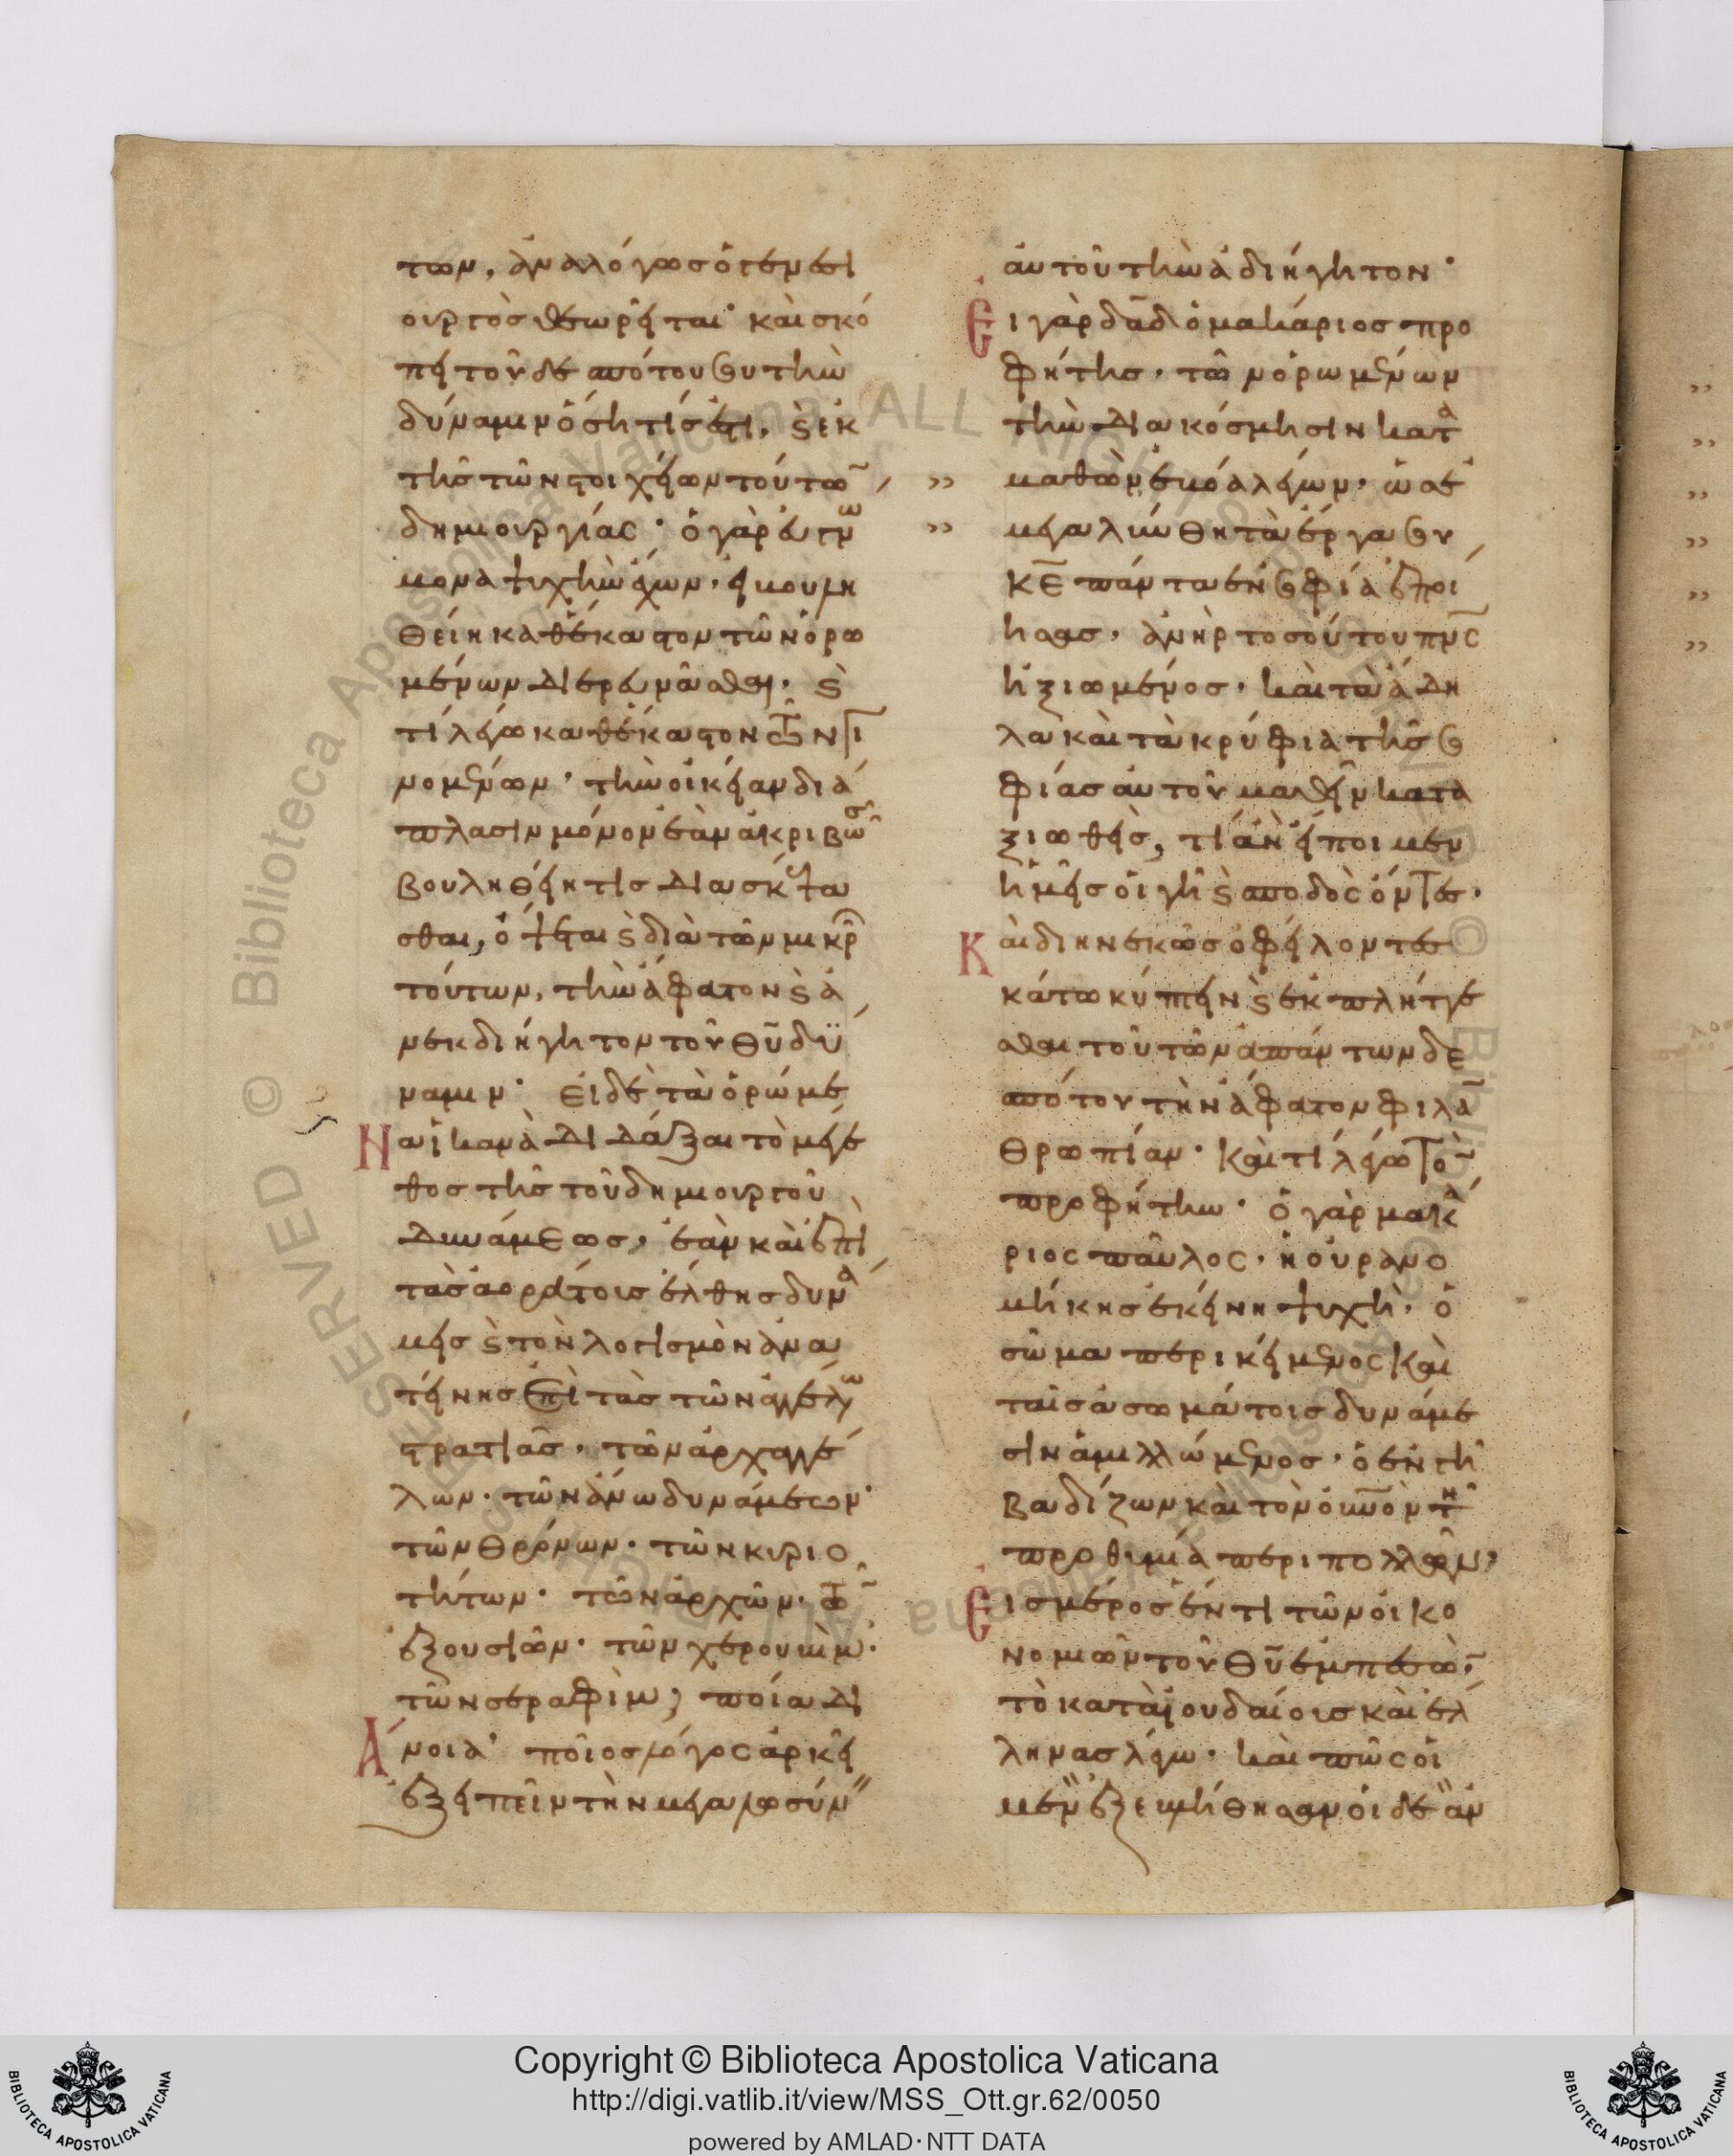 των, ἀναλόγως ὁ γενεσι
ουργὸς θεωρεῖται· καὶ σκό
πει τοῦ δεσπότου σου τὴν
δύναμιν ὅση τίς ἐστι, καὶ ἐκ
τῆς τῶν στοιχείων τούτων
δημιουργίας· ὁ γὰρ εὐγνώ
μονα ψυχὴν ἔχων, εἰ βουλη
θείη καθέκαστον τῶν ὁρω
μένων διερευνᾶσθαι, καὶ
τί λέγω καθέκαστον τῶν γι
νομένων· τὴν οἰκείαν διά
πλασιν μόνον ἐὰν ἀκριβῶς
βουληθείη τις διασκέψα
σθαι, ὄψεται καὶ διὰ τῶν μικρῶν
τούτων, τὴν ἄφατον καὶ ἀ
νεκδιήγητον τοῦ θ̅υ̅ δύ
ναμιν· εἰ δὲ τὰ ὁρώμε
να ἱκανὰ διδάξαι τὸ μέγε
θος τῆς τοῦ δημιουργοῦ
δυνάμεως, ἐὰν καὶ ἐπὶ
τὰς ἀοράτοις ἔλθης δυνά
μεις καὶ τὸν λογισμὸν ἀνα
τείνης ἐπὶ τὰς τῶν ἀγγέλων
στρατιὰς· τῶν ἀρχαγγέ
λων· τῶν ἄνω δυνάμεων·
τῶν θρόνων· τῶν κυριο
τήτων· τῶν ἀρχῶν· τῶν
ἐξουσιῶν· τῶν χερουβὶμ·
τῶν σεραφὶμ; ποία δι
άνοια· ποῖος λόγος ἀρκεῖ
ἐξειπεῖν τὴν μεγαλωσύνην
αὐτοῦ τὴν ἀδιήγητον·
Εἰ γὰρ δ̅α̅δ̅ ὁ μακάριος προ
φήτης· τῶν ὁρωμένων
τὴν διακόσμησιν κατα
μαθὼν ἐκβοᾶ λέγων· ὡς ἐ
μεγαλύνθη τὰ ἔργα σου
κ̅ε̅ πάντα ἐν σοφία ἐποί
ησας· ἀνὴρ τοσούτου π̅ν̅ς̅
ἠξιωμένος· καὶ τὰ ἄδη
λα καὶ τὰ κρύφια τῆς σο
φίας αὐτοῦ μαθεῖν κατα
ξιωθεὶς, τί ἂν εἴποιμεν
ἡμεῖς οἱ γῆ καὶ σποδὸς ὄντες·
Καὶ διηνεκῶς ὀφείλοντες
κάτω κύπτειν καὶ ἐκπλήττε
σθαι τοῦ τῶν ἁπάντων δε
σπότου τὴν ἄφατον φιλαν
θρωπίαν· καὶ τί λέγω τὸν
προφήτην· ὁ γὰρ μακά
ριος παῦλος· ἡ οὐρανο
μήκης ἐκείνη ψυχὴ· ὁ
σῶμα περικείμενος καὶ
ταῖς ἀσωμάτοις δυνάμε
σιν ἁμιλλώμενος· ὁ ἐν γῆ
βαδίζων καὶ τὸν ο̅υ̅νο̅ν τῆ
προθυμία περιπολῶν,
Εἰς μέρος ἕν τι τῶν οἰκο
νομιῶν τοῦ θ̅υ̅ ἐμπεσὼν·
τὸ κατὰ ἰουδαίοις καὶ ἕλ
ληνας λέγω· καὶ πῶς οἱ
μὲν ἐξεβλήθησαν οἱ δὲ ἀν
Copyright © Biblioteca Apostolica Vaticana
http://digi.vatlib.it/view/MSS_Ott.gr.62/0050
powered by AMLAD·NTT DATA
BIBLIOTECA APOSTOLICA VATICANA
BIBLIOTECA APOSTOLICA VATICANA